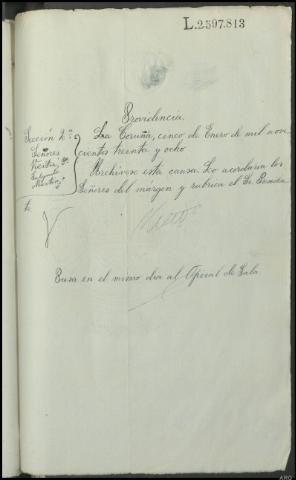 L.2.597.813
Providencia
Sección 2ª
Señores
La Coruña, cinco de Enero de mil nove
cientos treinta y ocho
Archívese esta causa. Lo acordaron los
Señores del margen y rubrica el Sr. Presiden
te
Pasa en el mismo día al Oficial de Sala
ARG